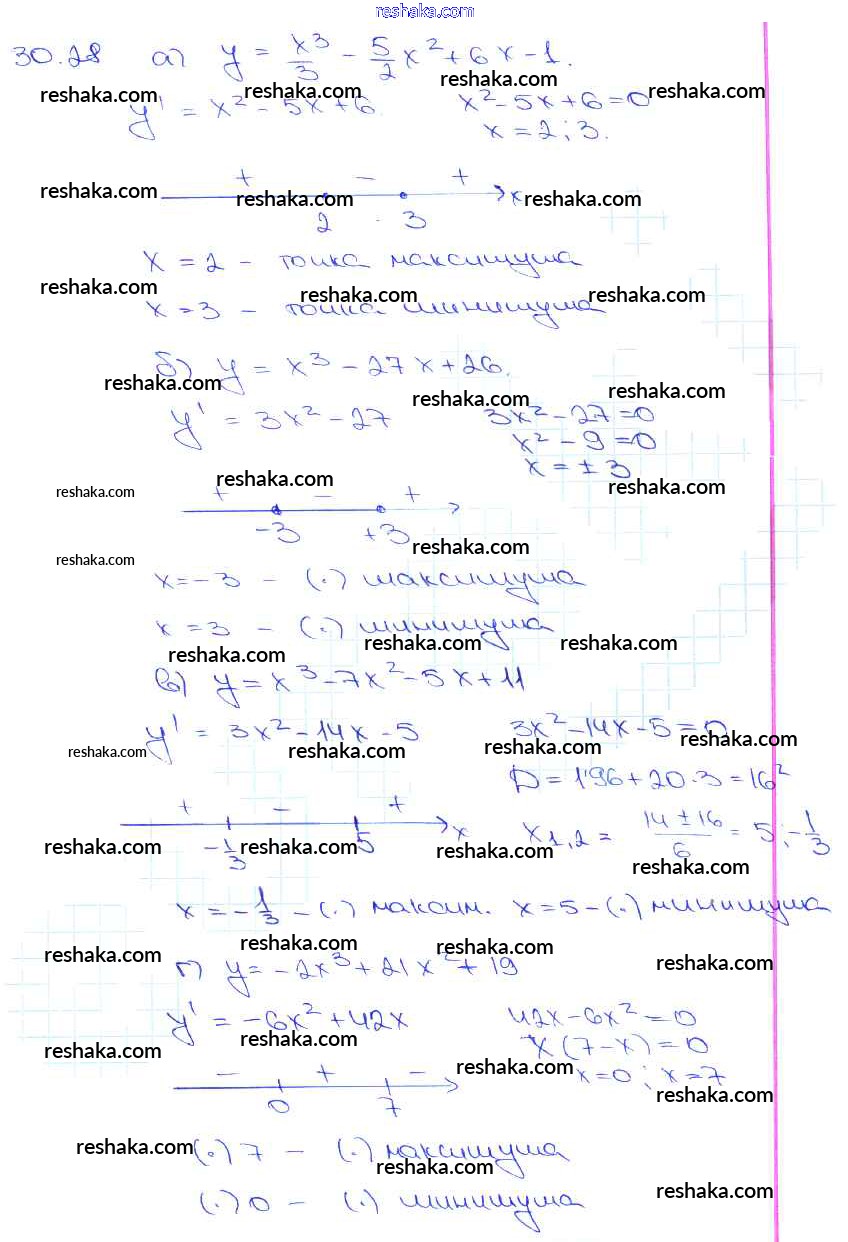 reshaka.com
30.28 а) y = x³/3 - 5/2 x² + 6x - 1.
reshaka.com reshaka.com reshaka.com
y' = x² - 5x + 6. x² - 5x + 6 = 0
x = 2; 3.
+ - +
reshaka.com reshaka.com x reshaka.com
2 3
x = 2 - точка максимума
reshaka.com reshaka.com reshaka.com
x = 3 - точка минимума
б) y = x³ - 27x + 26.
reshaka.com reshaka.com reshaka.com
y' = 3x² - 27 3x² - 27 = 0
x² - 9 = 0
x = ± 3
reshaka.com reshaka.com reshaka.com
+ - +
-3 +3
reshaka.com reshaka.com
x = -3 - (.) максимума
x = 3 - (.) минимума
reshaka.com reshaka.com reshaka.com
в) y = x³ - 7x² - 5x + 11
y' = 3x² - 14x - 5 3x² - 14x - 5 = 0
reshaka.com reshaka.com reshaka.com reshaka.com
D = 196 + 20·3 = 16²
+ - + x
-1/3 5 x1,2 = (14 ± 16)/6 = 5; -1/3
reshaka.com reshaka.com reshaka.com reshaka.com
x = -1/3 - (.) максим. x = 5 - (.) минимума
reshaka.com reshaka.com reshaka.com reshaka.com
г) y = -2x³ + 21x² + 19
y' = -6x² + 42x 42x - 6x² = 0
x(7 - x) = 0
reshaka.com reshaka.com reshaka.com
x = 0; x = 7
- + -
0 7
reshaka.com
(.) 7 - (.) максимума
reshaka.com reshaka.com
(.) 0 - (.) минимума
reshaka.com